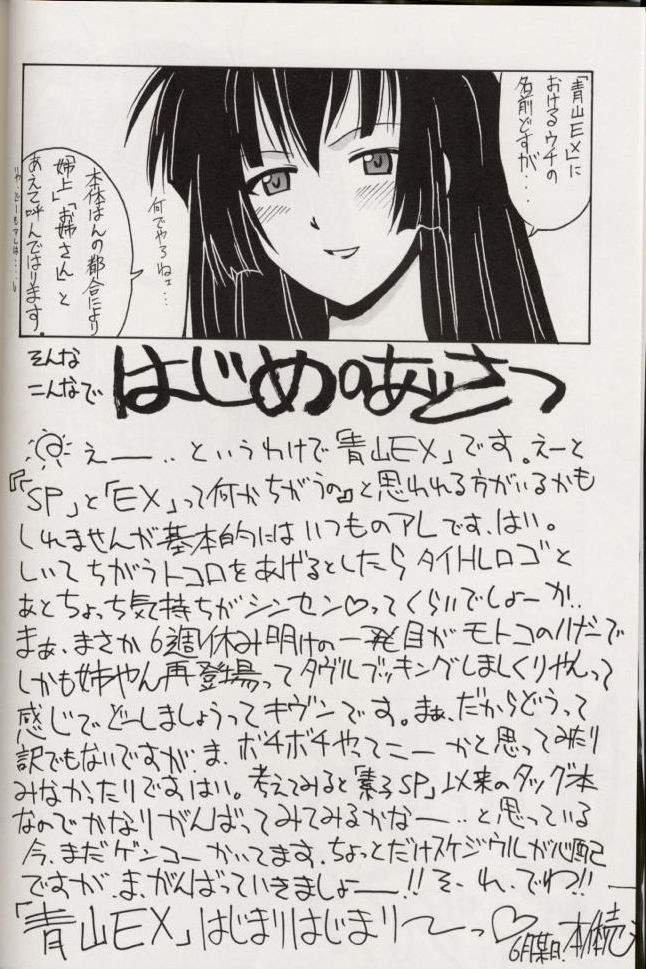 「青山EX」に
おけるウチの
名前どすが‥
何でやろねェ…
本体はんの都合により
「姉上」「お姉さん」と
あえて呼んではります。
そんな
こんなで
はじめのあいさつ
えー‥というわけで「青山EX」です。えーと
『「SP」と「EX」って何かちがうの』と思われる方がいるかも
しれませんが基本的にはいつものアレです、はい。
しいてちがうトコロをあげるとしたらタイトルロゴと
あとちょっち気持ちがシンセン♡ってくらいでしょーか‥
まぁ、まさか6週休み明けの一発目がモトコのハダーで
しかも姉やん再登場ってダヴルブッキングしましくりやんって
感じでどーしましょうってキヴンです。まぁ、だからどうって
訳でもないですが、ま、ボチボチやってこーかと思ってみたり
みなかったりですはい。考えてみると「素子SP」以来のタッグ本
なのでかなりがんばってみてみるかなー‥と思っている
今、まだゲンコーかいてます、ちょっとだけスケジウルが心配
ですが、ま、がんばっていきましょー!!そ、れ、でわ!!
「青山EX」はじまりはじまり～っ♡
6月某日、本体売